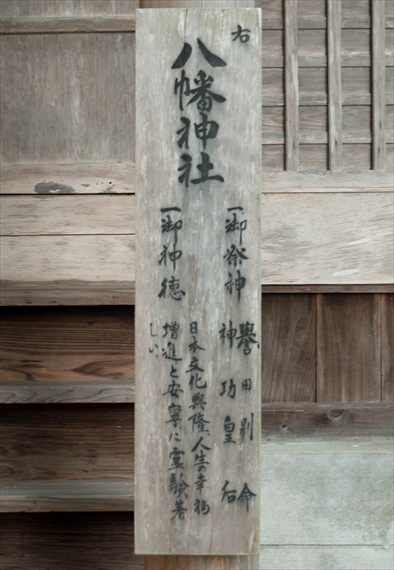 右
八幡神社
一御祭神 譽田別命
神功皇后
一御神徳
日本文化興隆人生の幸福
増進と安寧に霊験著
しい